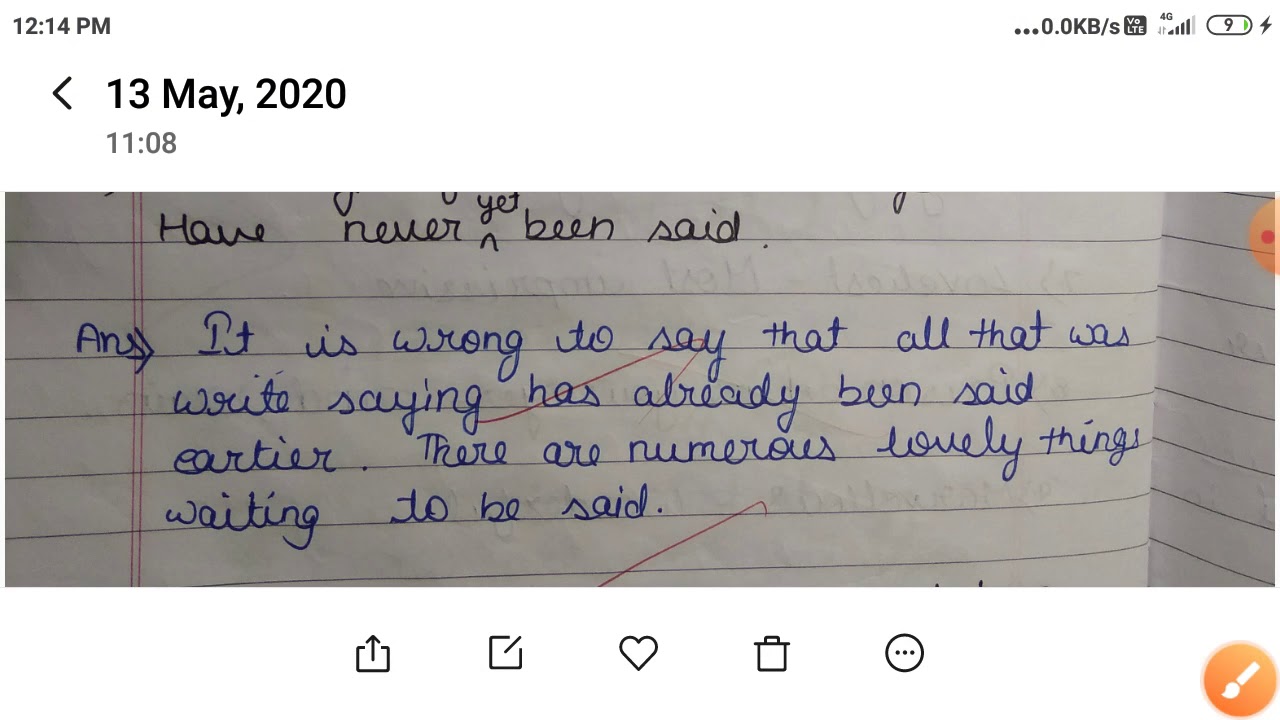 12:14 PM ...0.0KB/s Vo LTE 4G 9
13 May, 2020
11:08
yet
Have never ^ been said.
Ans) It is wrong to say that all that was
write saying has already been said
eartier. There are numerous lovely things
waiting to be said.